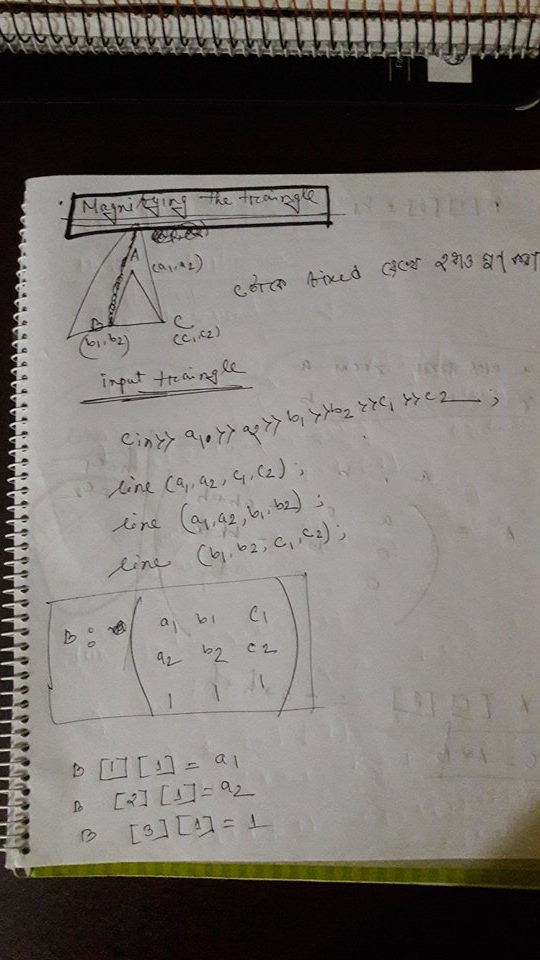 Magnifying the traiangle
A
(a1, a2)
B
(b1, b2)
C
(c1, c2)
fixed
input traiangle
Cin>> a1 >> a2 >> b1 >> b2 >> c1 >> c2 ;
line (a1, a2, c1, c2) ;
line (a1, a2, b1, b2) ;
line (b1, b2, c1, c2) ;
B :
a1 b1 c1
a2 b2 c2
1 1 1
B [1] [1] = a1
B [2] [1] = a2
B [3] [1] = 1